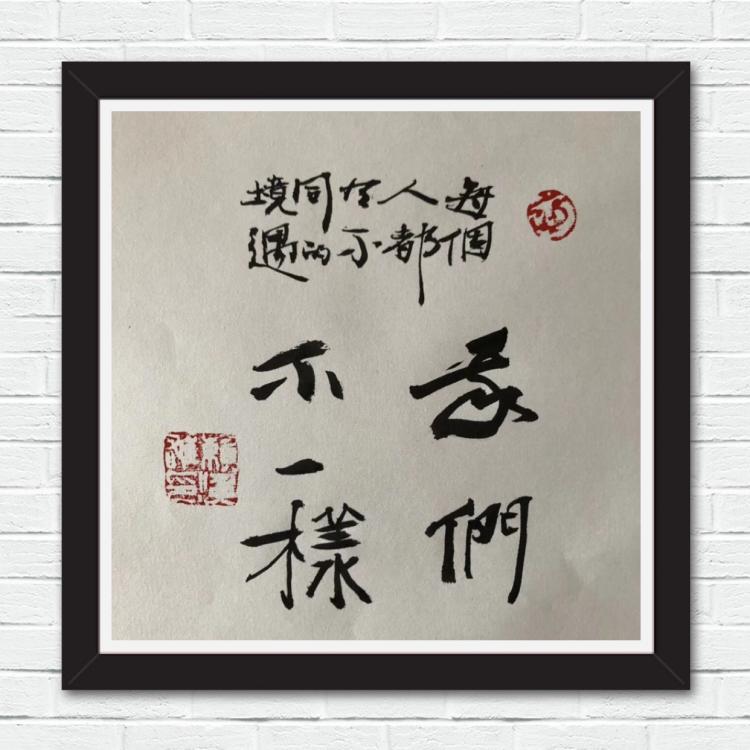 每個
人都
有不
同的
境遇
我們
不一樣